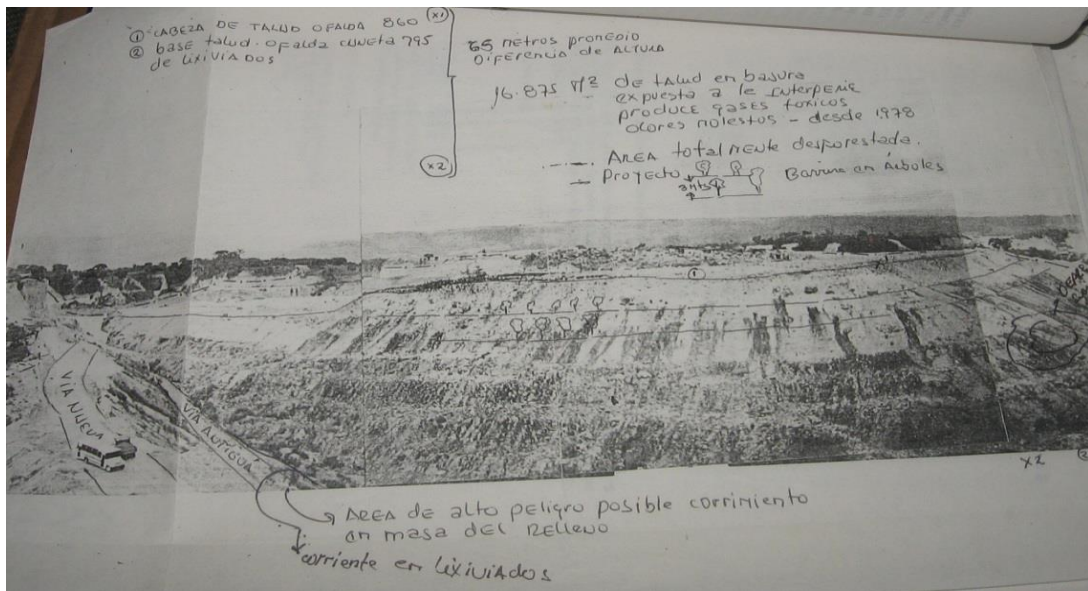 ① CABEZA DE TALUD O FALDA 860 (x1)
② base talud. o falda cuneta 795
de lixiviados
(x2)
65 metros promedio
Diferencia de Altura
16.875 M² de talud en basura
expuesta a le interperie
produce gases toxicos
olores molestos - desde 1978
Area totalmente desforestada.
Proyecto
3 mts
Barrera en Arboles
①
VIA NUEVA
VIA ANTIGUA
x2
Area de alto peligro posible corrimiento
en masa del Relleno
corriente en lixiviados